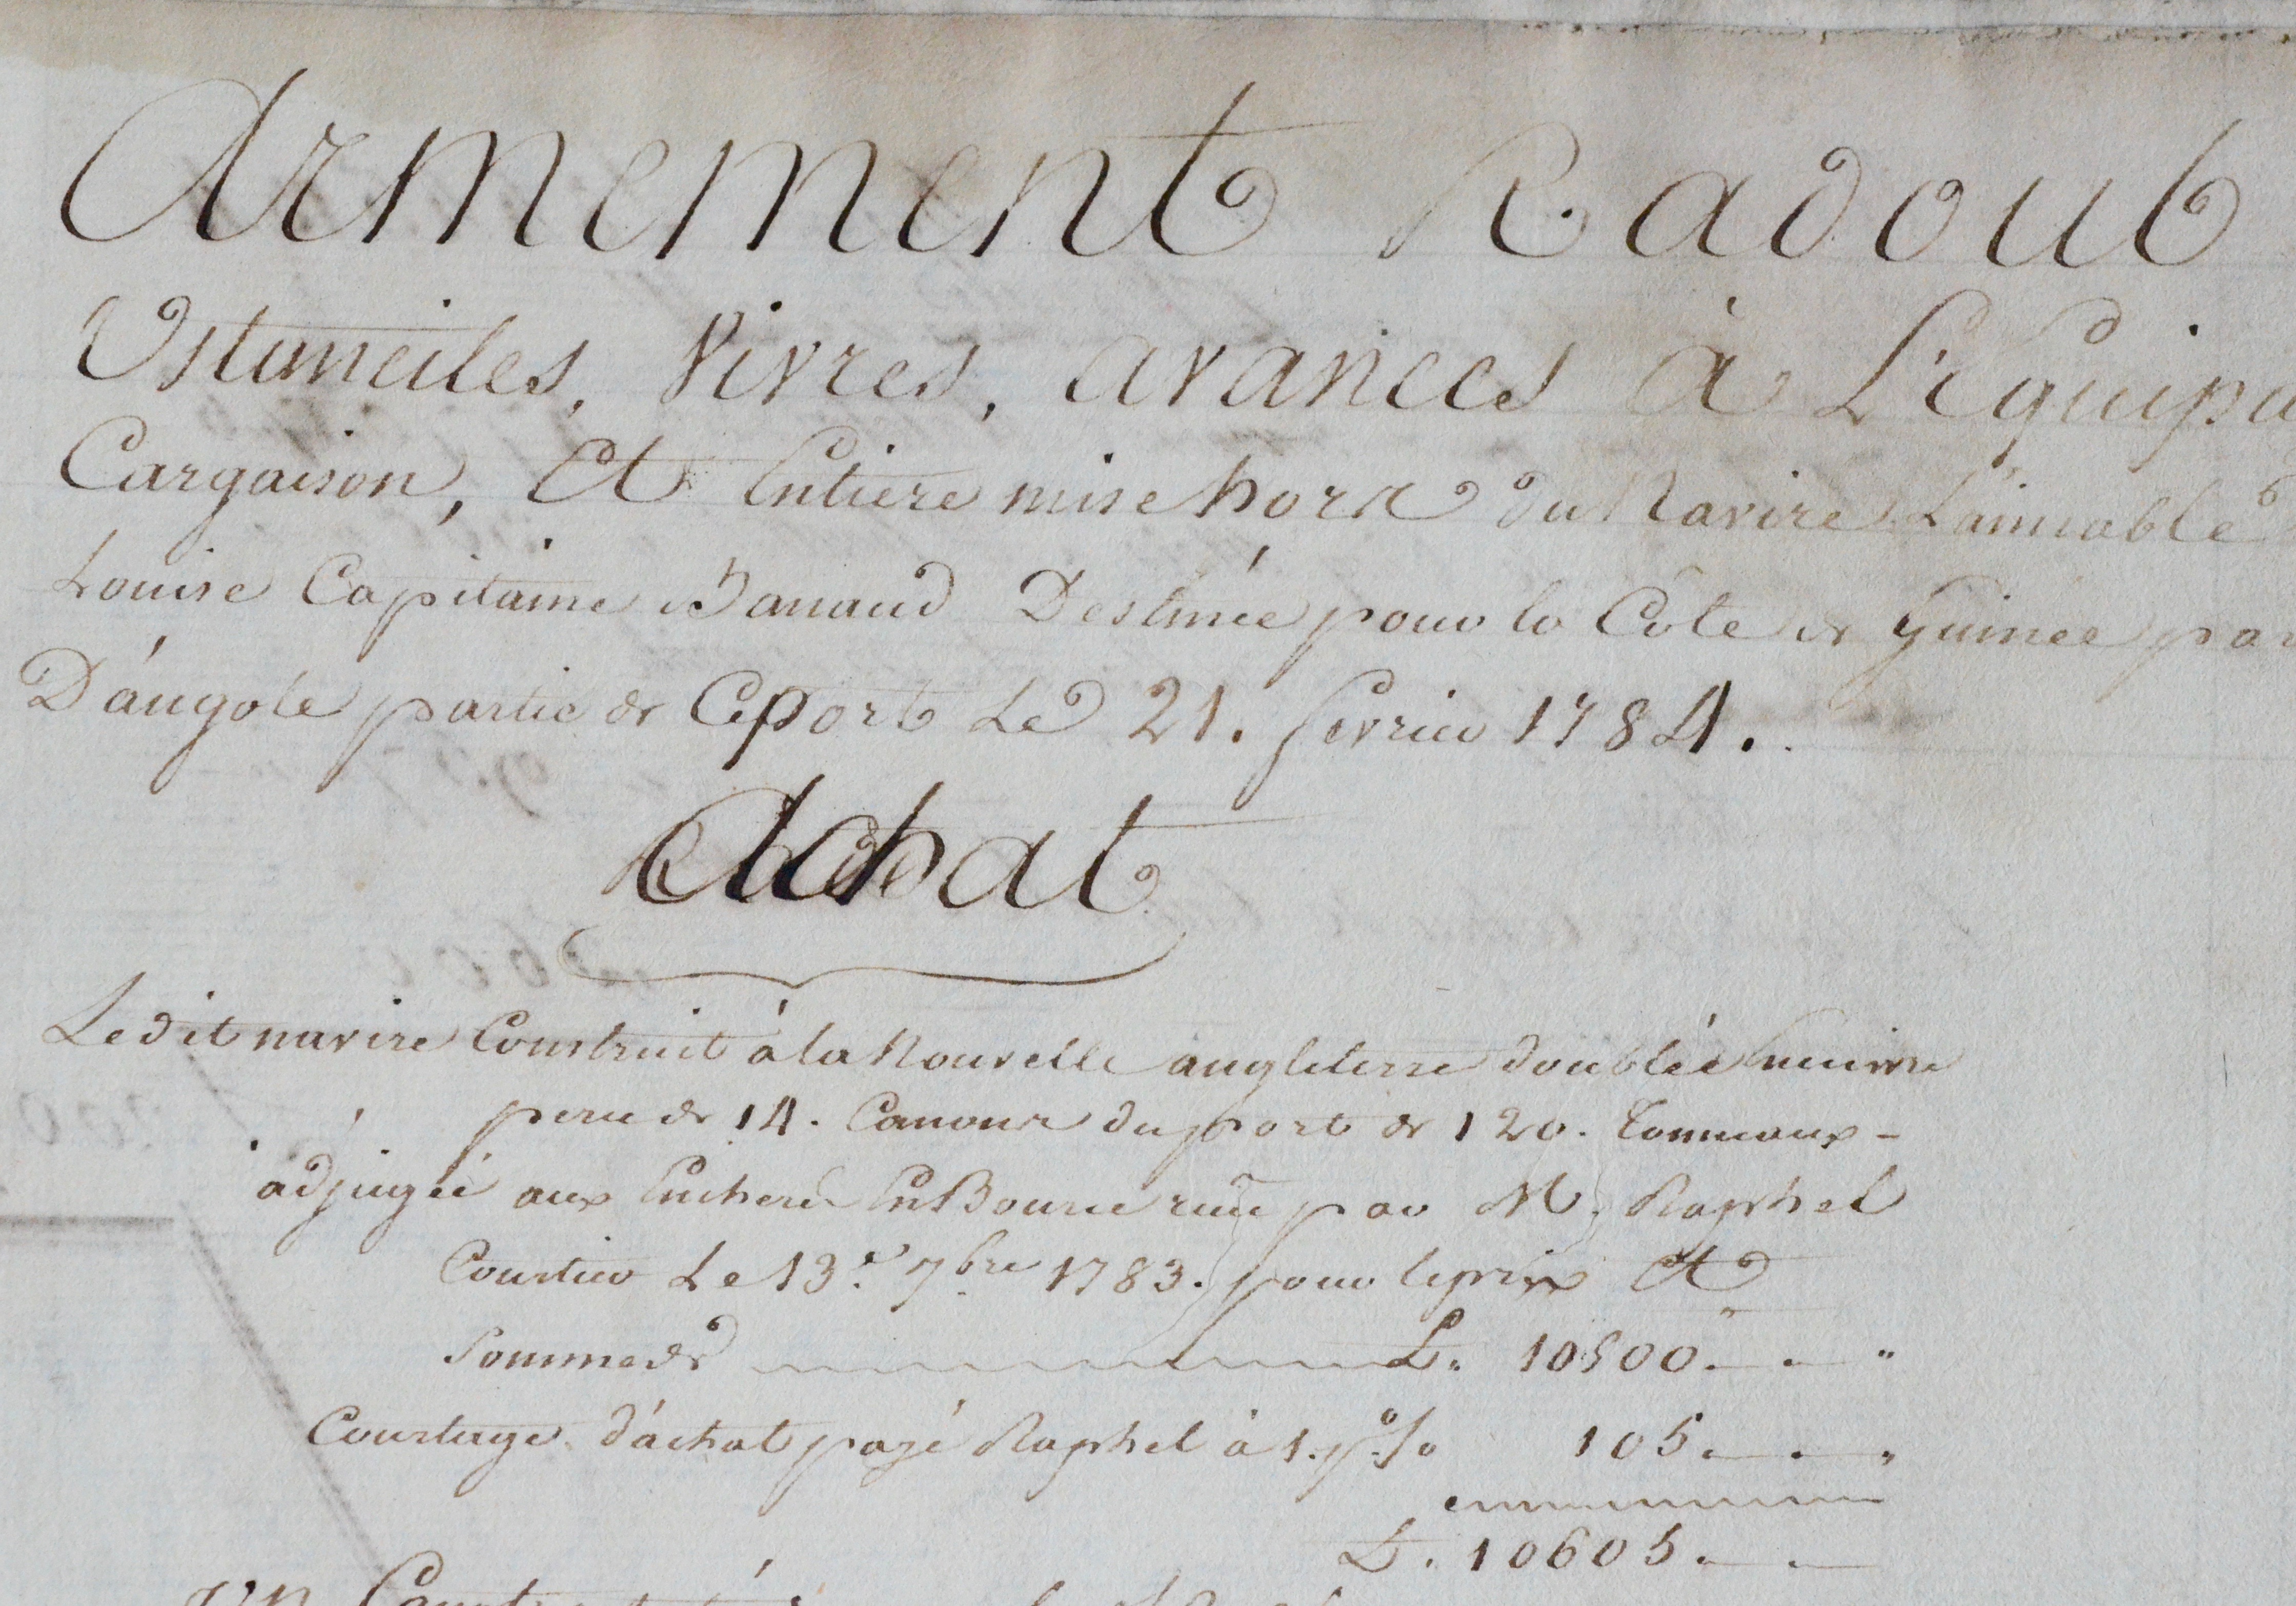 Armement Radoub
Ustanciles, Vivres, avances à L'Equipa
Cargaison, Et Entiere mise hors du Navire L'aimable
Louise Capitaine Banaud Destinée pour la Côte de Guinée par
D'angole partie de Ceport Le 21. fevrier 1784.
Achat
Ledit navire Construit à la Nouvelle angleterre doublée En cuivre
percé de 14. Canons du port de 120. Tonneaux -
adjugée aux Encheres En Bource par M. Raphel
Courtier Le 13.e 7.bre 1783. pour le prix Et
Somme de L. 10500. - . "
Courtage d'achat payé Raphel à 1. p% 105. - . "
L. 10605. - . -